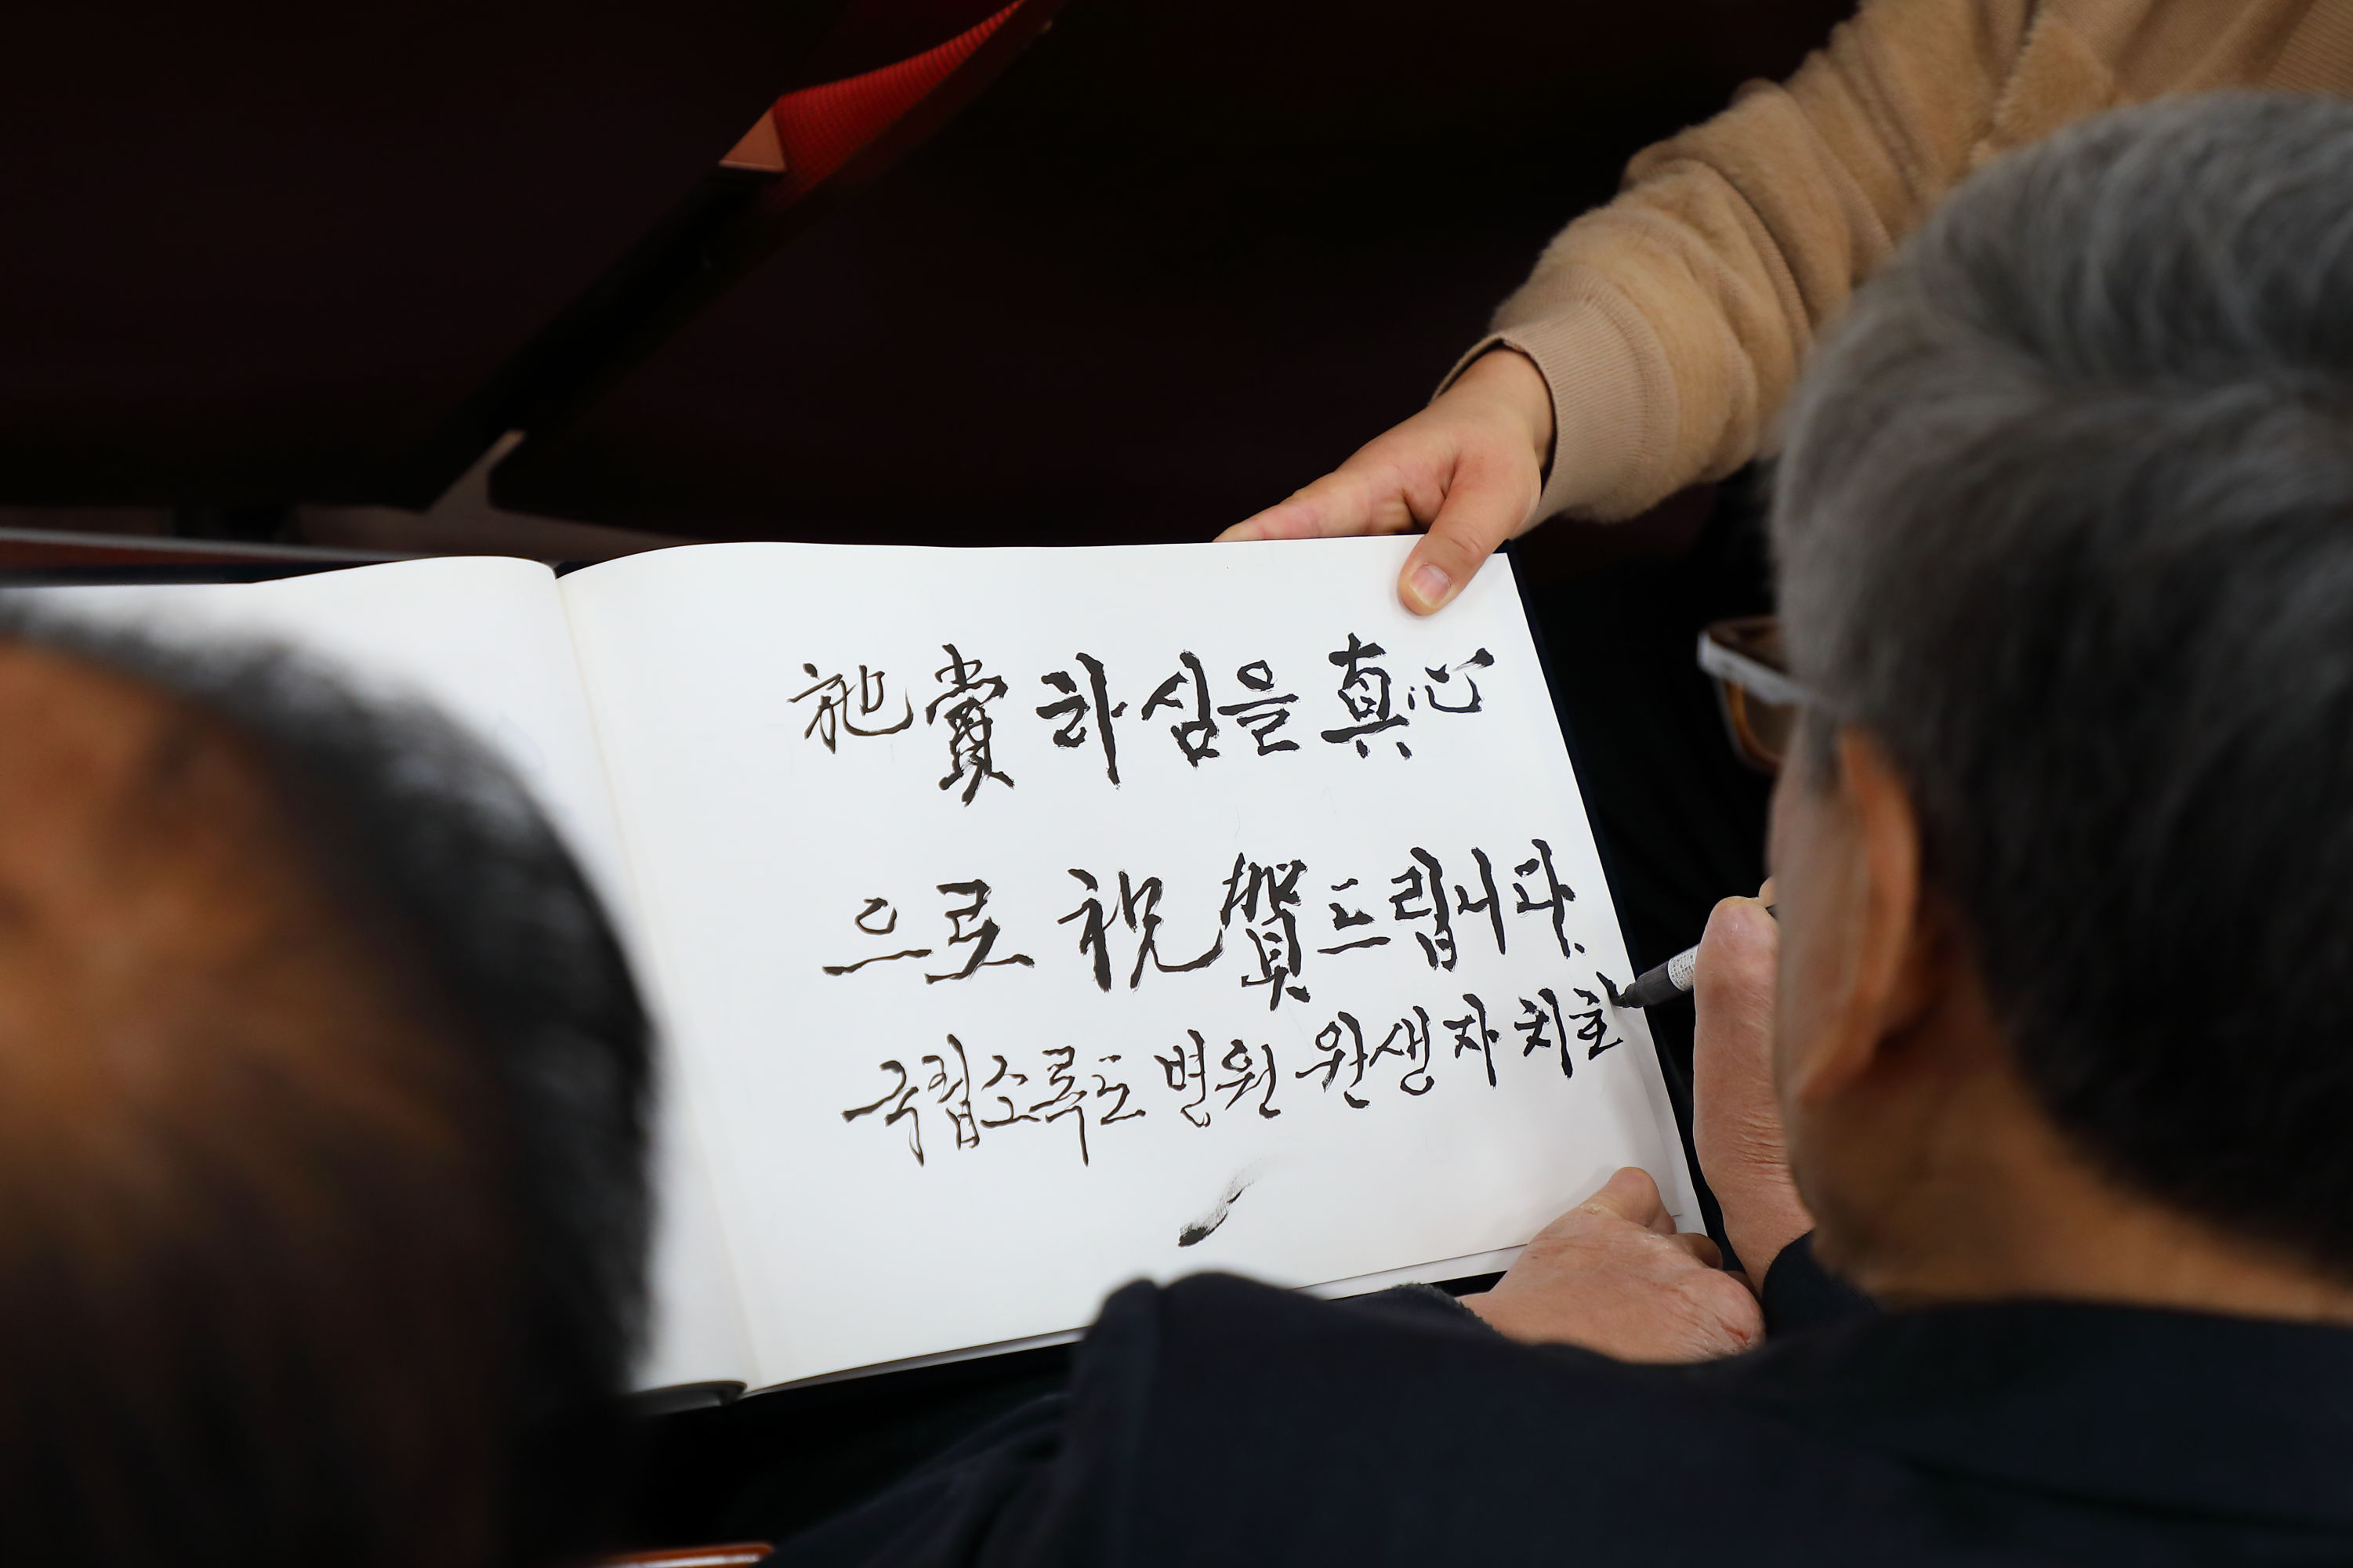 施賞하심을 真心
으로 祝賀드립니다.
국립소록도 병원 원생자치회